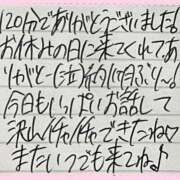 120分でありがとうございました!
お休みの日に来てくれてあ
りがとー(泣)約1ヶ月ぶり〜!
今日もいっぱいお話して
沢山イチャイチャできたね♡
またいつでも来てね♪